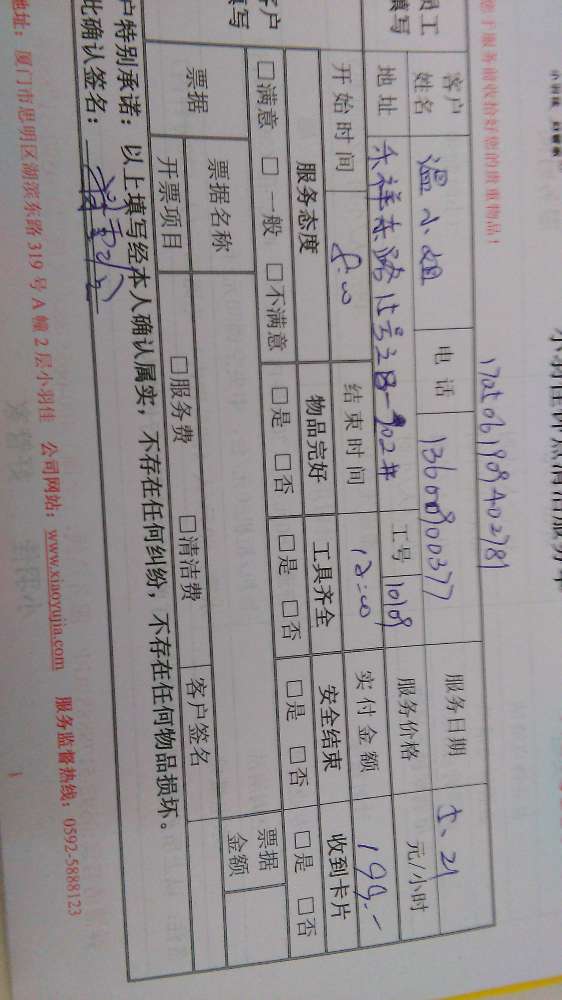 小羽佳钟点清洁服务单
您于服务前收拾好您的贵重物品！
员工填写
客户姓名 温小姐 电话 13600900377 服务日期 5.21
地址 乐祥东路 工号 1018 服务价格 元/小时
开始时间 8:00 结束时间 12:00 实付金额 199.-
客户填写
服务态度 物品完好 工具齐全 安全结束 收到卡片
□满意 □一般 □不满意 □是 □否 □是 □否 □是 □否 □是 □否
票据 票据名称 票据金额
开票项目 □服务费 □清洁费 客户签名
户特别承诺：以上填写经本人确认属实，不存在任何纠纷，不存在任何物品损坏。
此确认签名：
地址：厦门市思明区湖滨东路 319 号 A 幢 2 层小羽佳 公司网站：www.xiaoyujia.com 服务监督热线：0592-5888123
1